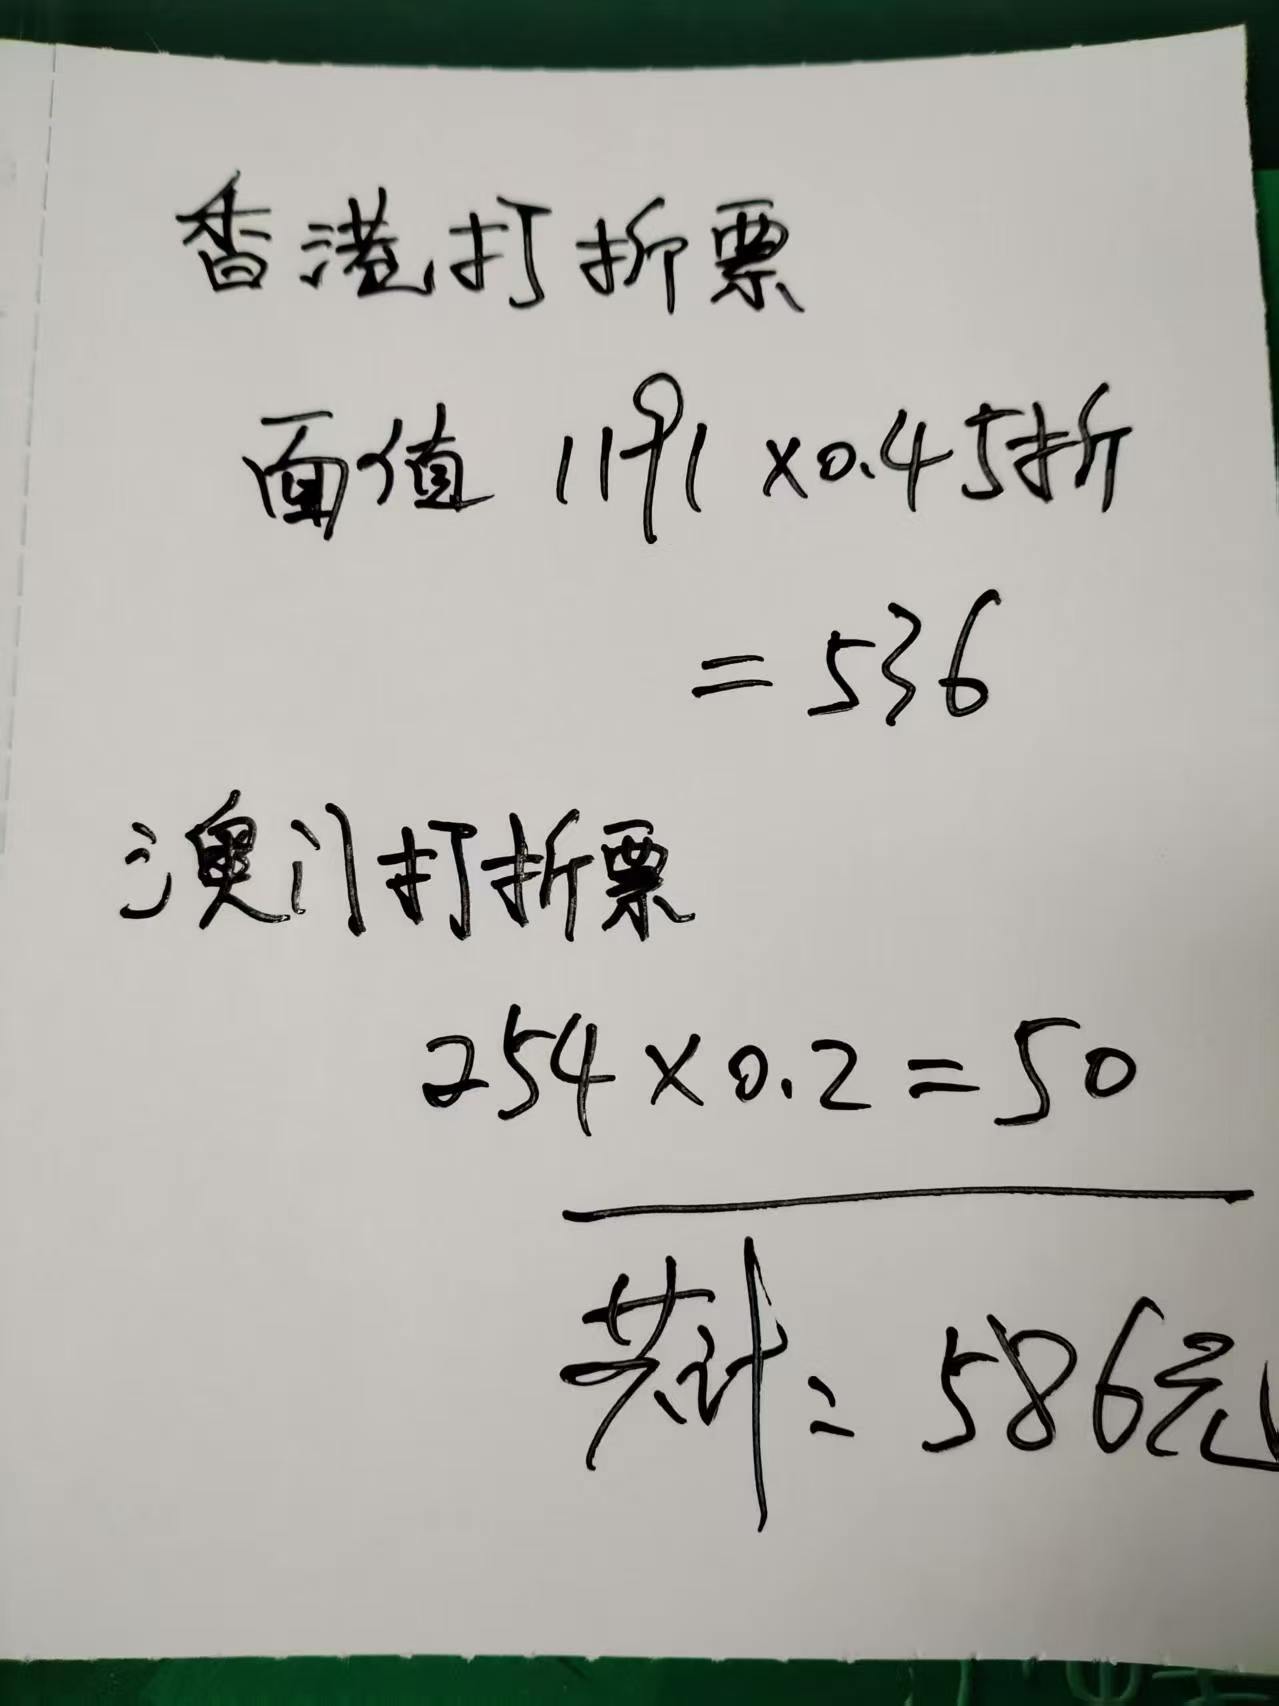 香港打折票
面值 1191 x0.45折
= 536
澳门打折票
254 x 0.2 = 50
共计 = 586元